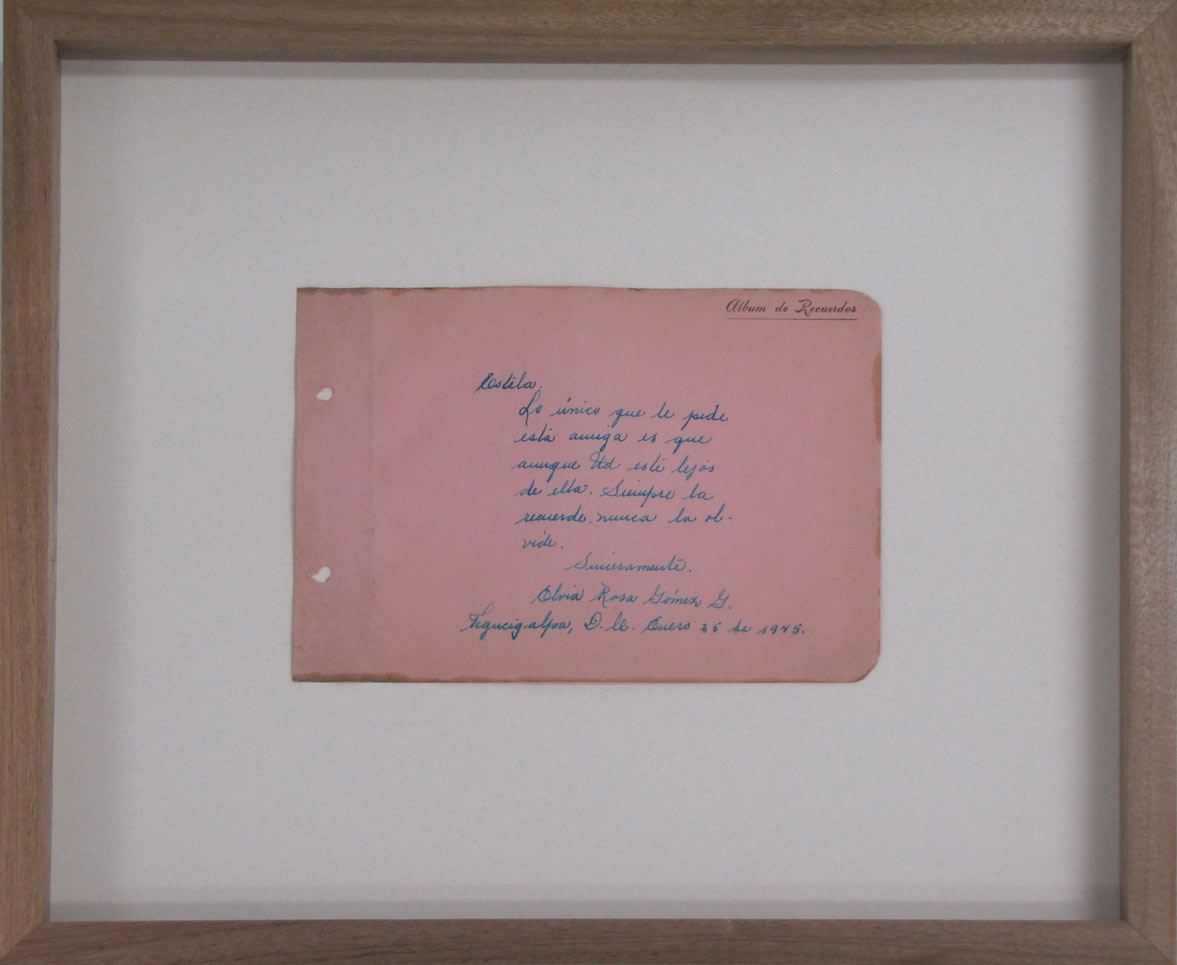 Album de Recuerdos
Estela.
Lo único que le pide
está amiga es que
aunque Ud esté lejos
de ella. Siempre la
recuerde. nunca la ol-
vide.
Sinceramente.
Elvia Rosa Gómez G.
Tegucigalpa, D.C. Enero 25 de 1945.